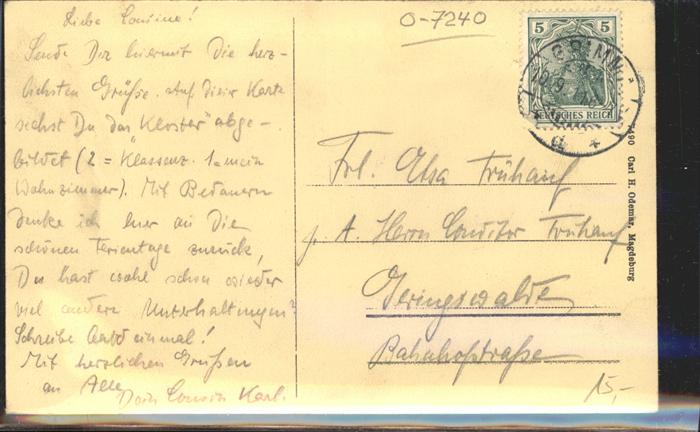 Liebe Cousine!
Sende Dir hiermit die herz-
lichsten Grüße. Auf dieser Karte
siehst Du das "Kloster" abge-
bildet (2 = Klassenz. 1 = mein
Wohnzimmer). Mit Bedauern
denke ich hier an die
schönen Ferientage zurück,
Du hast wohl schon wieder
viel andere Unterhaltungen?
Schreibe bald einmal!
Mit herzlichen Grüßen
an Alle
Dein Cousin Karl.
O-7240
5 5
DEUTSCHES REICH
GRIMM
Frl. Elsa Frühauf
p. A. Herrn Conditor Frühauf
Geringswalde
Bahnhofstraße
15,-
490 Carl H. Odemar, Magdeburg